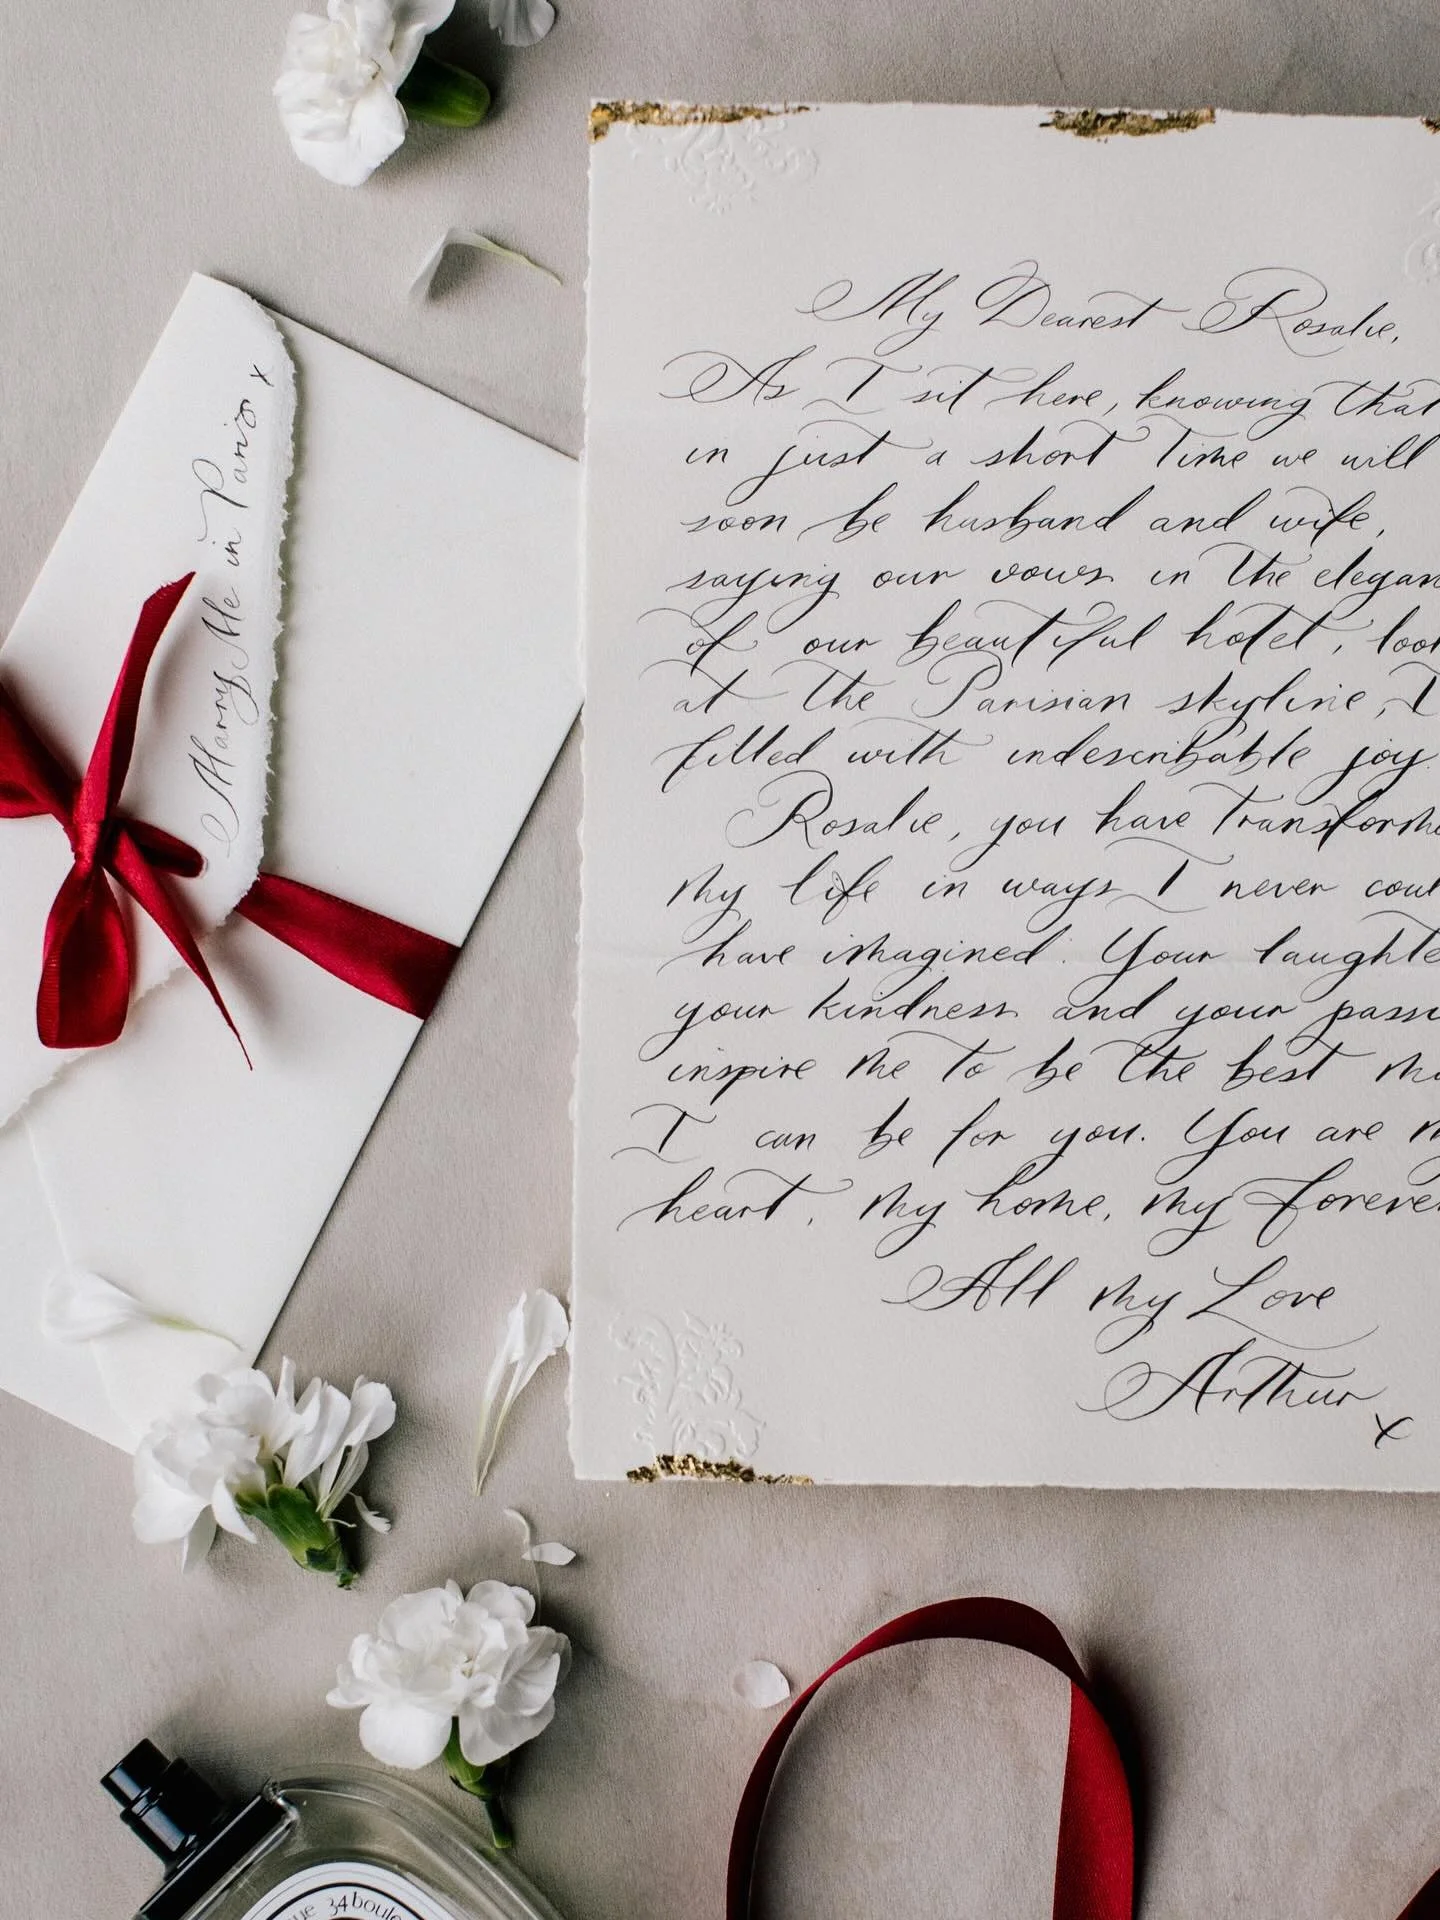 Marry Me in Paris x
My Dearest Rosalie,
As I sit here, knowing that
in just a short time we will
soon be husband and wife,
saying our vows in the elegan
of our beautiful hotel, loo
at the Parisian skyline, I
filled with indescribable joy.
Rosalie, you have transforme
my life in ways I never coul
have imagined. Your laughte
your kindness and your passi
inspire me to be the best ma
I can be for you. You are m
heart, my home, my forever
All my Love
Arthur
x
ue 34 boule